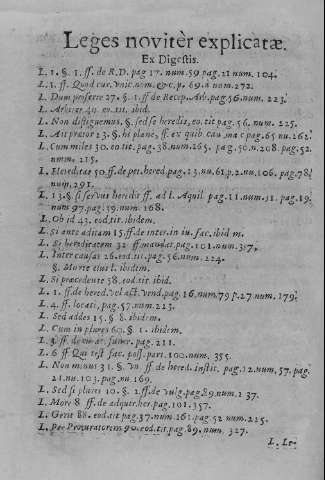 Leges novitèr explicatæ.
Ex Digestis.
L. 1. §. 1. ff. de R.D. pag 17. num. 59 pag. 21 num 104.
L. 1. ff. Quod cur. vnic. nom. &c. p. 69. à num. 272.
L. Dum proferre 27. §. 1. ff de Recep. Arb. pag. 56. num. 223.
L. Arbiter 40. eo. tit. ibid.
L. Non distiguemus. §. sed se heredis, eo. tit pag 56. num. 225.
L. Ait prætor 23. §. hi plane, ff. ex quib cau. ma c pag. 65 nu. 262.
L. Cum miles 30. eo tit. pag. 38. num. 265. pag. 50. u. 208. pag. 52.
num. 215.
L. Hereditas 50. ff. de pet. hered. pag. 23. nu. 61. p. 22. nu. 106. pag. 78.
num. 291.
L. 13. §. si servus heredis ff. ad l. Aquil pag. 11. num. 31. pag. 19.
num 97. pag. 39. num. 168.
L. Ob id 43. eod. tit. ibidem.
L. si ante aditam 15. ff. de inter. in iu. fac. ibid m.
L. Si hereditatem 32 ff mandat. pag. 101. num. 317.
L. Inter causas 26. eod. tit. pag. 56. num. 224.
§. Morte eius l. ibidem.
L. Si præcedente 58. eod. tit. ibid.
L. 1. ff. de hered. vel act. vend. pag. 16. num. 79 p. 27 num 179.
L. 4. ff. locati, pag. 57. num. 223.
L. Sed addes 15. §. 8. ibidem.
L. Cum in plures 60. §. 1. ibidem.
L. ff. de curat. furios. pag. 211.
L. 6 ff Qui test fac. poss. part. 100. num. 355.
L. Non minus 31. §. vn ff de hered. instit. pag. 12. num. 57. pag.
21. nu. 103. pag. nu. 169.
L. Sed si plures 10. §. 2. ff. de vulg. pag. 89. num. 137.
L. More 8 ff. de adquir. her pag. 101. 357.
L. Gerit 88. eod. tit pag. 37. num. 161. pag 52 num. 215.
L. Per Procuratorem 90. eod. tit. pag. 89. num. 327.
L. Le-